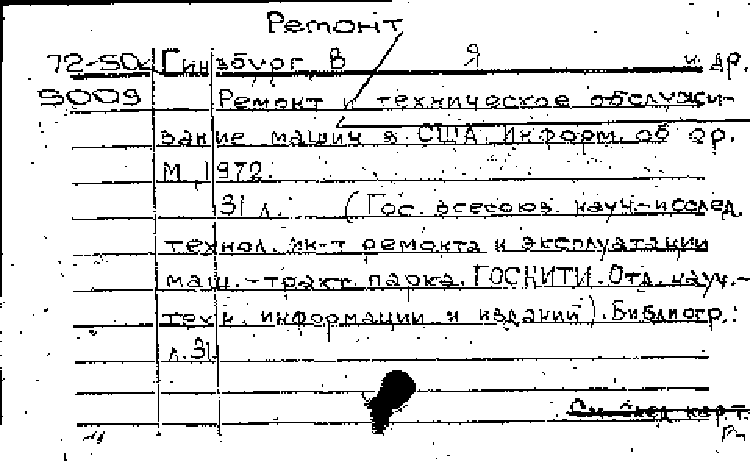 Ремонт
72-50 Гинзбург В Я и др.
9009 Ремонт и техническое обслужи-
вание машин в США. Информ. об ор.
М., 1972.
31 л. (Гос. всесоюз. науч.-исслед.
технол. ин-т ремонта и эксплуатации
маш.-тракт. парка. ГОСНИТИ. Отд. науч.-
техн. информации и издании). Библиогр.:
л. 31
См. след. карт.